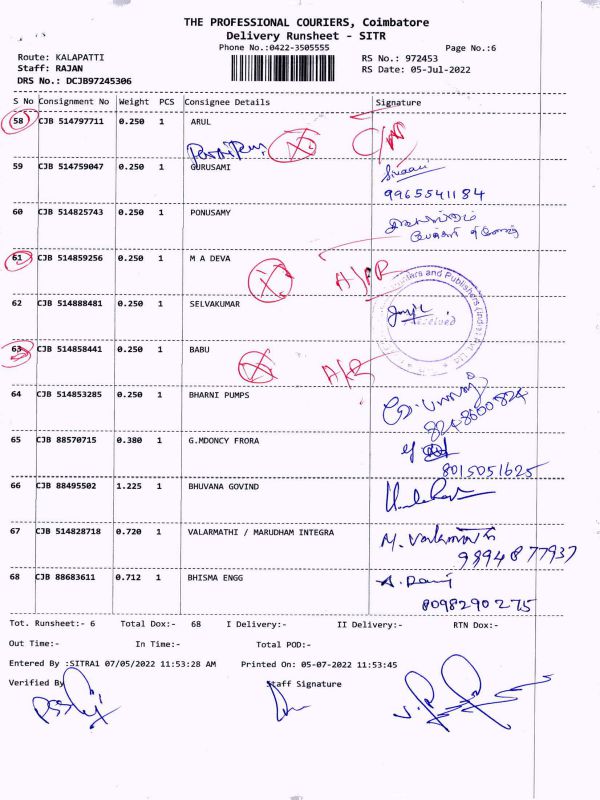 THE PROFESSIONAL COURIERS, Coimbatore
Delivery Runsheet - SITR
Phone No.:0422-3505555
Page No.:6
Route: KALAPATTI
RS No.: 972453
Staff: RAJAN
RS Date: 05-Jul-2022
DRS No.: DCJB97245306
S No Consignment No Weight PCS Consignee Details Signature
58 CJB 514797711 0.250 1 ARUL
59 CJB 514759047 0.250 1 GURUSAMI
9965541184
60 CJB 514825743 0.250 1 PONUSAMY
61 CJB 514859256 0.250 1 M A DEVA
62 CJB 514888481 0.250 1 SELVAKUMAR
Received
63 CJB 514858441 0.250 1 BABU
64 CJB 514853285 0.250 1 BHARNI PUMPS
8248600824
65 CJB 88570715 0.380 1 G.MDONCY FRORA
8015051625
66 CJB 88495502 1.225 1 BHUVANA GOVIND
67 CJB 514828718 0.720 1 VALARMATHI / MARUDHAM INTEGRA
9894877937
68 CJB 88683611 0.712 1 BHISMA ENGG
A. Ravi
8098290275
Tot. Runsheet:- 6 Total Dox:- 68 I Delivery:- II Delivery:- RTN Dox:-
Out Time:- In Time:- Total POD:-
Entered By :SITRA1 07/05/2022 11:53:28 AM Printed On: 05-07-2022 11:53:45
Verified By Staff Signature